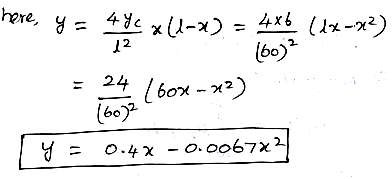 here, y = 4yc/l² x(l-x) = 4×6/(60)² (lx-x²)
= 24/(60)² (60x-x²)
y = 0.4x - 0.0067x²